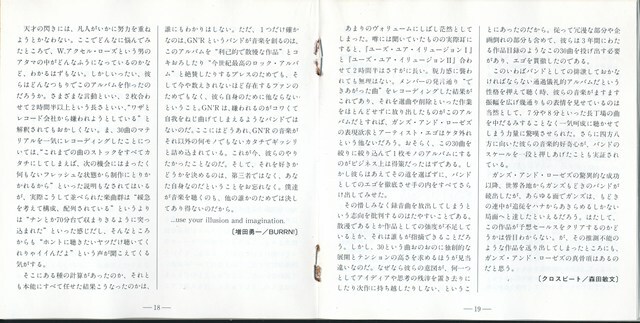 天才の閃きには、凡人がいかに努力を重ね
ようとかなわない。ここでどんなに悩んでみ
たところで、W.アクセル・ローズという男の
アタマの中がどんなふうになっているのかな
ど、わかるはずもない。しかしいったい、彼
らはどんなつもりでこのアルバムを作ったの
だろうか。さまざまな言動といい、2枚合わ
せて2時間半以上という長さといい、“ワザと
レコード会社から嫌われようとしている”と
解釈されてもおかしくない。ま、30曲のマテ
リアルを一気にレコーディングしたことにつ
いては、“これまでの曲のストックをすべてカ
タチにしてしまえば、次の機会にはまったく
何もないフレッシュな状態から制作にとりか
かれるから”といった説明もなされてはいる
が、実際こうして並べられた楽曲群は“構想
を考えて構成、配列されている”というより
は“ナンとか20分台で収まりきるように突っ
込まれた”といった感じだし、そんなところ
からも“ホントに聴きたいヤツだけ聴いてく
れりゃイイんだよ”という声が聞こえてくる
気がする。
そこにある種の計算があったのか、それと
も本能にすべて任せた結果こうなったのかは、
誰にもわかりはしない。ただ、1つだけ確か
なのは、GN'Rというバンドが音楽を創るのは、
このアルバムを“利己的で散慢な作品”とコ
キおろしたり“今世紀最高のロック・アルバ
ム”と絶賛したりするプレスのためでも、そ
して今や数えきれないほど存在するファンの
ためでもなく、彼ら自身のために他ならない
ということ。GN'Rは、嫌われるのがコワくて
自我をねじ曲げてしまえるようなバンドでは
ないのだ。ここにはどうあれ、GN'Rの音楽が
それ以外の何モノでもないカタチでギッシリ
と詰め込まれている。これが今、彼らのやり
たかったことなのだ。そして、それを好きか
どうかを決めるのは、第三者ではなく、あな
た自身なのだということをお忘れなく。僕達
が音楽を聴くのも、他の誰かのためでは決し
てあり得ないのだから。
...use your illusion and imagination.
［増田勇一／BURRN!］
—18—
あまりのヴォリュームにしばし茫然として
しまった。噂には聞いていたものの実際耳に
すると、『ユーズ・ユア・イリュージョンⅠ』
と『ユーズ・ユア・イリュージョンⅡ』合わ
せて2時間半はさすがに長い。現方壘に襲わ
れても無理はない。メンバーの発言通り“で
きあがった曲”をレコーディングした結果が
これであり、それを選曲や削除といった作業
をほとんどせずに放り出したものがこのアル
バムだとすれば、ガンズ・アンド・ローゼズ
の表現欲求とアーティスト・エゴはケタ外れ
という他ないだろう。おそらく、この30曲を
絞りに絞り込んで1枚モノのアルバムにする
のがビジネス上は得策だったはずである。し
かし彼らはあえてその道を選ばずに、バンド
としてのエゴを徹底させ手の内をすべてさら
け出してみせた。
その惜しみなく録音曲を放出してしまうと
いう志向を批判するのはたやすいことである。
散漫であるとか作品としての強度が不足して
いるとか、それは誰もが指摘できることだろ
う。しかし、30という曲のおのおに独創的な
展開とテンションの高さを求めるほうが見当
違いなのだ。なぜなら彼らの意図が、何一つ
としてアイディアや思考の残滓を置き去りに
したり次作に持ち越したりしない、というこ
とにあったのだから。従って冗漫な部分や企
画倒れの部分も含めて、彼らは3年間にわた
る作品目録のようなこの30曲を投げ出す必要
があり、エゴを貫徹したのである。
このいわばバンドとしての排泄しておかな
ければならない通過儀礼的アルバムだという
性格を押して聴く時、彼らの音楽がますます
振幅を広げ幾通りもの表情を見せているのは
当然として、7分や8分といった長丁場の曲
を中だるみすることなく一気呵成に聴かせて
しまう力量に驚嘆させられた。さらに四方八
方に向いた彼らの音楽的好奇心が、バンドの
スケールを一段と押しあげたことも実証され
ている。
ガンズ・アンド・ローゼズの驚異的な成功
以降、世界各地からガンズもどきのバンドが
続出したが、あらゆる面でガンズは、もどき
の連中が追従をハナからあきらめるしかない
局面へと達したといえるだろう。はたして、
この作品が予想セールスをクリアするのかど
うかは皆目わからないが、その推測不能の
ような作品を送り出してしまったところにも、
ガンズ・アンド・ローゼズの真骨頂はあるの
だと思う。
［クロスビート／森田敏文］
—19—